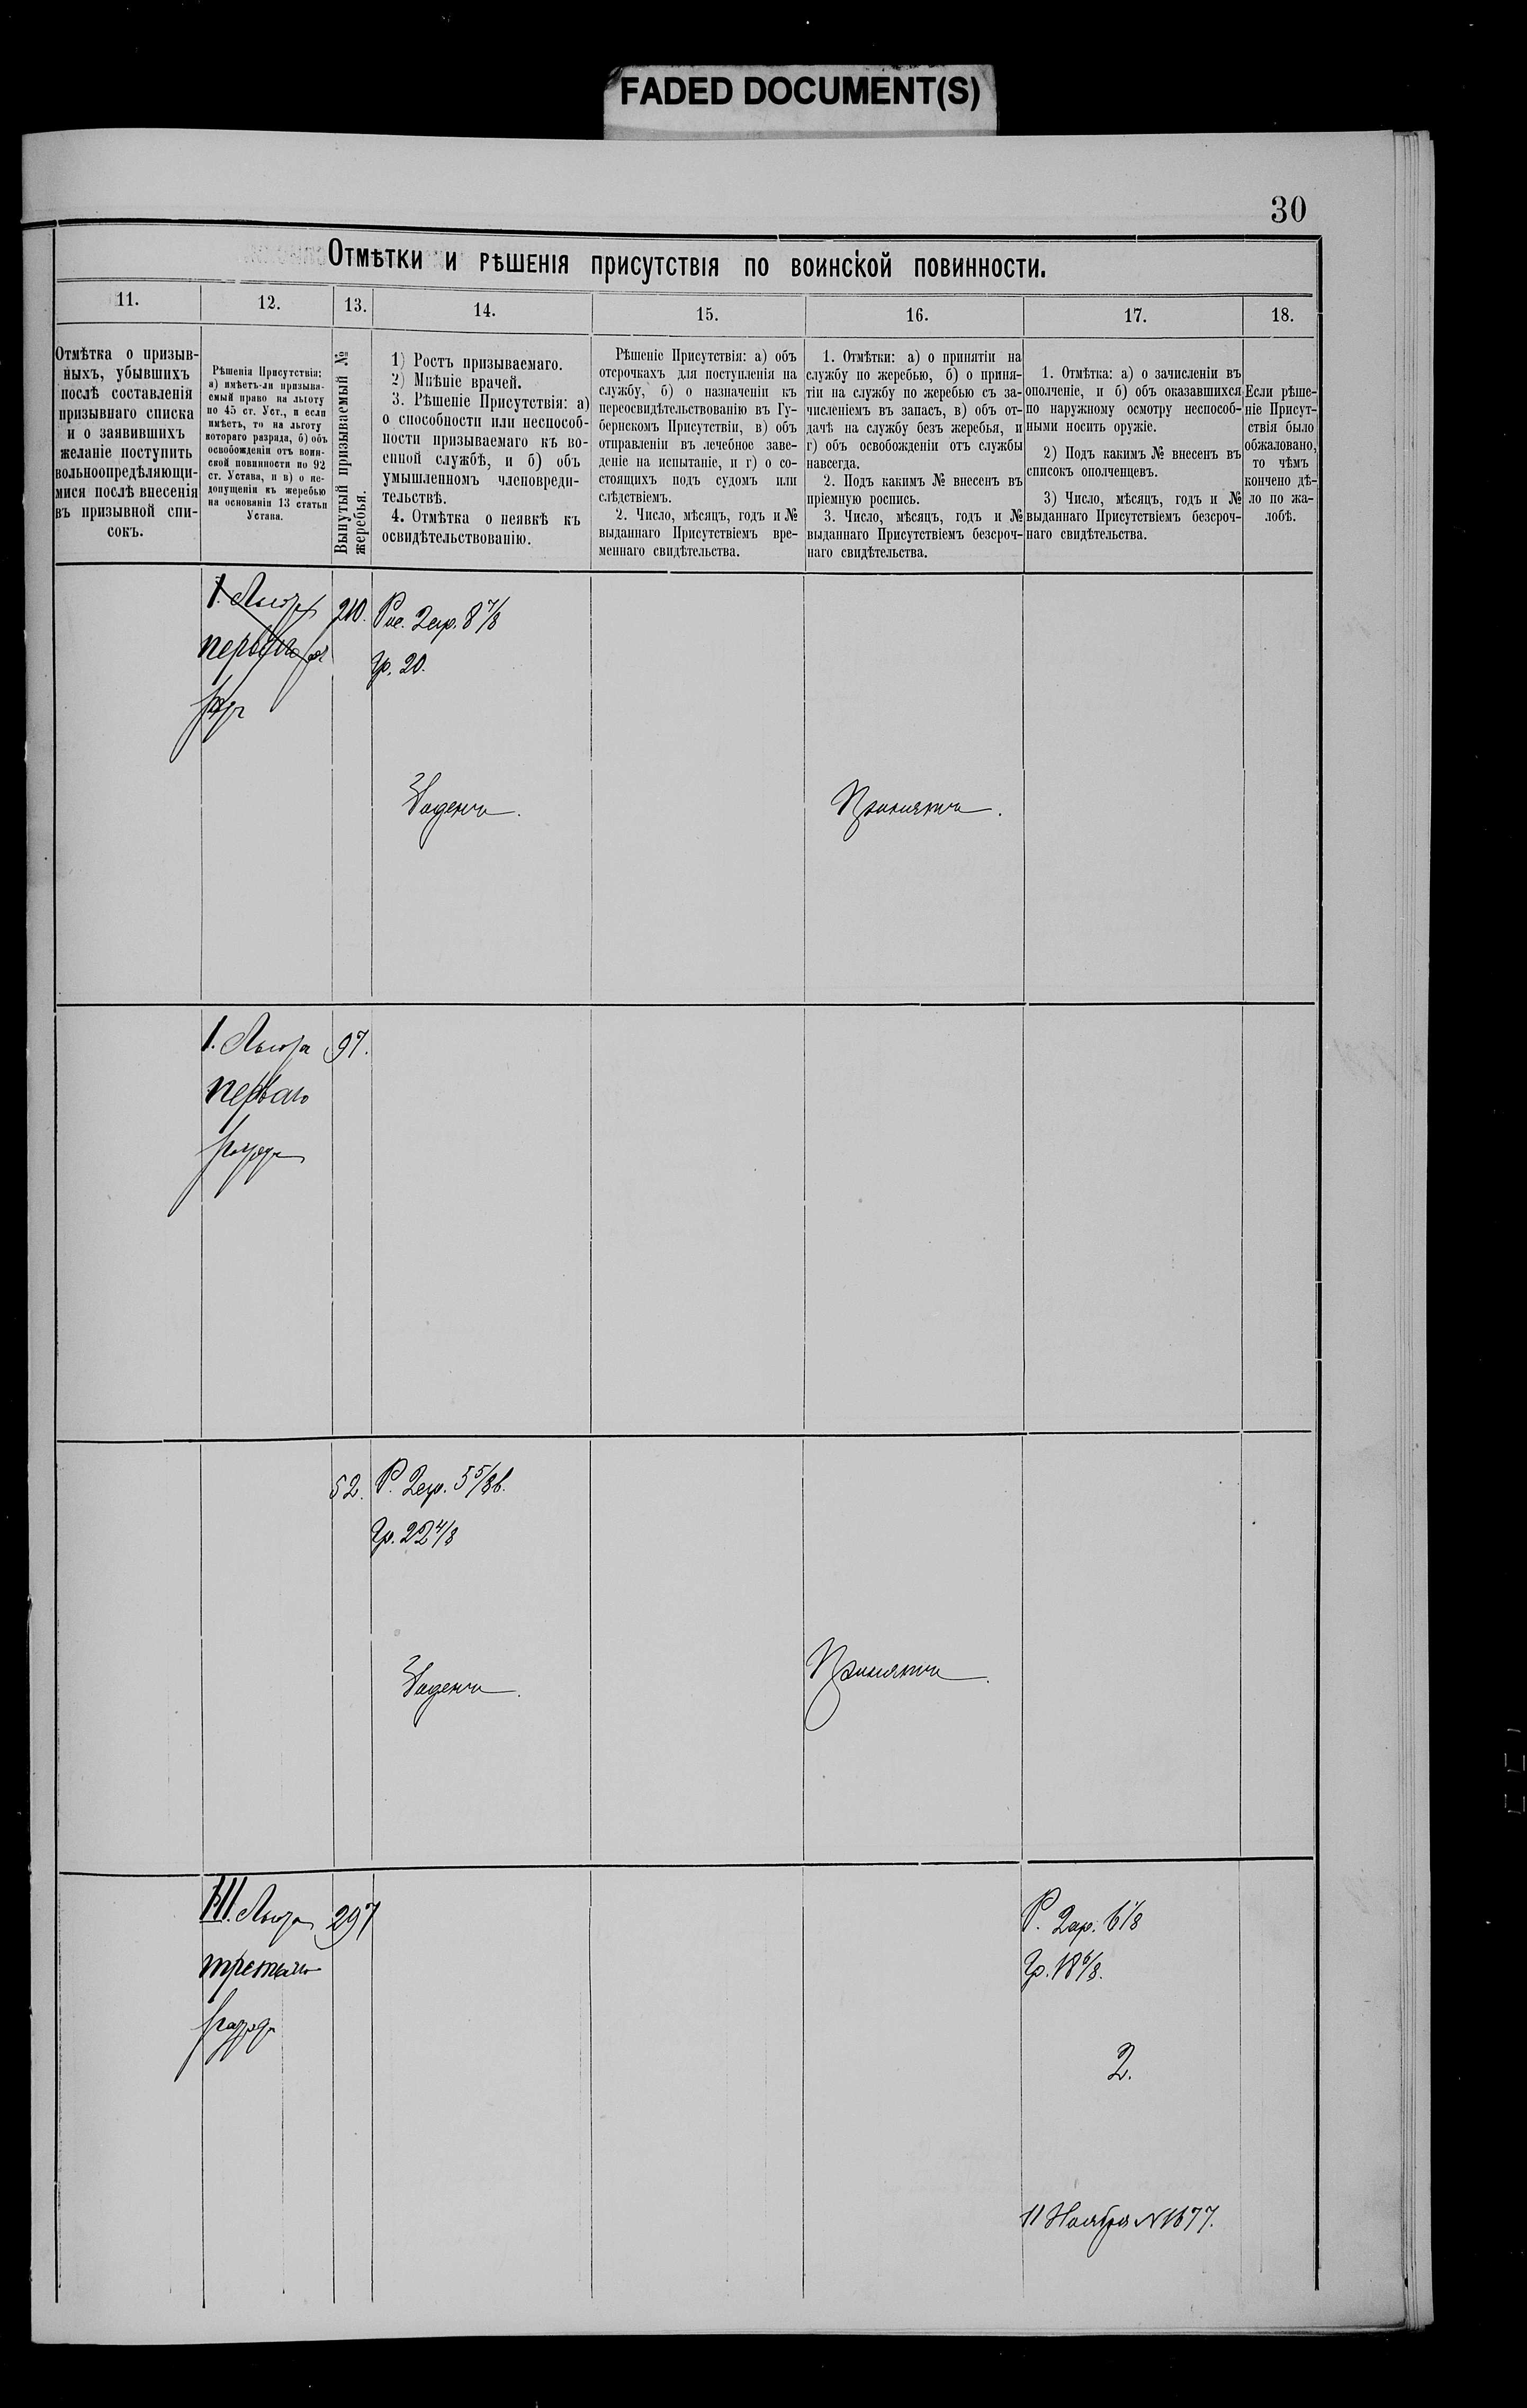 FADED DOCUMENT(S)
30
Отмѣтки и рѣшенія присутствія по воинской повинности.
11.
12.
13.
14.
15.
16.
17.
18.
Отмѣтка о призыв-
ныхъ, убывшихъ
послѣ составленія
призывнаго списка
и о заявившихъ
желаніе поступить
вольноопредѣляющи-
мися послѣ внесенія
въ призывной спи-
сокъ.
Рѣшенія Присутствія:
а) имѣетъ-ли призыва-
емый право на льготу
по 45 ст. Уст., и если
имѣетъ, то на льготу
котораго разряда, б) объ
освобожденіи отъ воин-
ской повинности по 92
ст. Устава, и в) о не-
допущеніи къ жеребью
на основаніи 13 статьи
Устава.
Вынутый призываемый №
жеребья.
1) Ростъ призываемаго.
2) Мнѣніе врачей.
3. Рѣшеніе Присутствія: а)
о способности или неспособ-
ности призываемаго къ во-
енной службѣ, и б) объ
умышленномъ членовреди-
тельствѣ.
4. Отмѣтка о неявкѣ къ
освидѣтельствованію.
Рѣшеніе Присутствія: а) объ
отсрочкахъ для поступленія на
службу, б) о назначеніи къ
переосвидѣтельствованію въ Гу-
бернскомъ Присутствіи, в) объ
отправленіи въ лечебное заве-
деніе на испытаніе, и г) о со-
стоящихъ подъ судомъ или
слѣдствіемъ.
2. Число, мѣсяцъ, годъ и №
выданнаго Присутствіемъ вре-
меннаго свидѣтельства.
1. Отмѣтки: а) о принятіи на
службу по жеребью, б) о приня-
тіи на службу по жеребью съ за-
численіемъ въ запасъ, в) объ от-
дачѣ на службу безъ жеребья, и
г) объ освобожденіи отъ службы
навсегда.
2. Подъ какимъ № внесенъ въ
пріемную роспись.
3. Число, мѣсяцъ, годъ и №
выданнаго Присутствіемъ безсроч-
наго свидѣтельства.
1. Отмѣтка: а) о зачисленіи въ
ополченіе, и б) объ оказавшихся
по наружному осмотру неспособ-
ными носить оружіе.
2) Подъ какимъ № внесенъ въ
списокъ ополченцевъ.
3) Число, мѣсяцъ, годъ и №
выданнаго Присутствіемъ безсроч-
наго свидѣтельства.
Если рѣше-
ніе Присут-
ствія было
обжаловано,
то чѣмъ
кончено дѣ-
ло по жа-
лобѣ.
1. Льгота
перваго
210.
Рос. 2 ар. 8 7/8
Гр. 20.
Годенъ.
Принятъ.
1. Льгота
перваго
разряда
97.
52.
Р. 2 ар. 5 5/8 в.
Гр. 22 4/8
Годенъ.
Принятъ.
III. Льгота
третьяго
разряда
297
Р. 2 ар. 6 1/8
Гр. 18 6/8.
2.
11 Ноября № 1677.